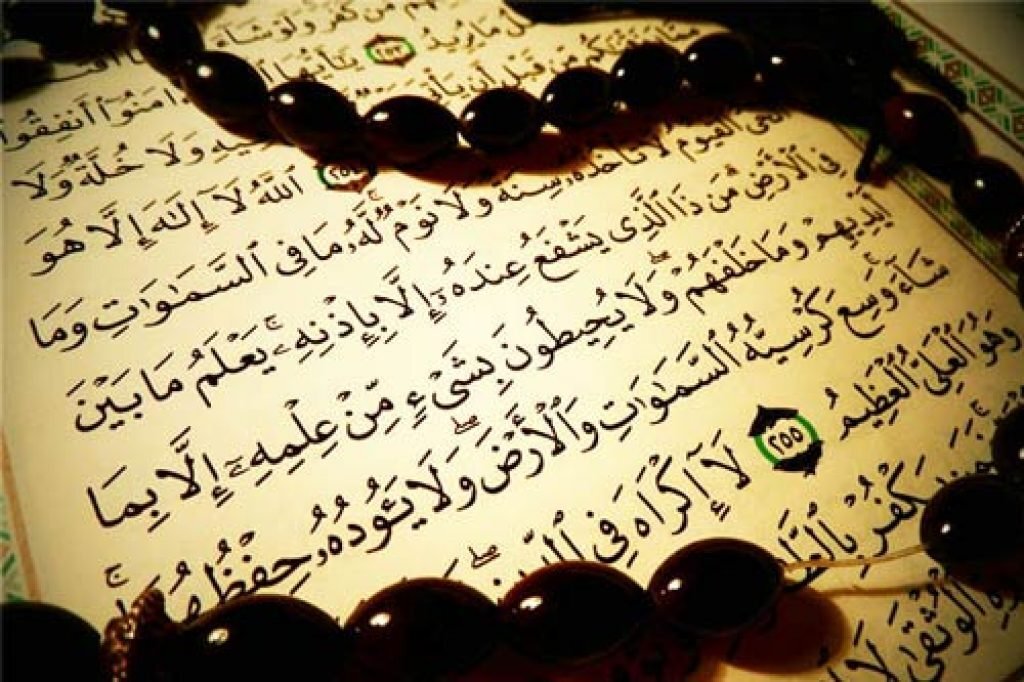 مَّن كَفَرَ وَلَوْ شَآءَ
مَا يُرِيدُ ٢٥٣ يَٰٓأَيُّهَا ءَامَنُوٓا۟ أَنفِقُوا۟
مِّن قَبْلِ أَن يَأْتِىَ فِيهِ وَلَا خُلَّةٌ وَلَا
٢٥٤ ٱللَّهُ لَآ إِلَٰهَ إِلَّا هُوَ
ٱلْقَيُّومُ لَا تَأْخُذُهُۥ سِنَةٌ وَلَا نَوْمٌ لَّهُۥ مَا فِى ٱلسَّمَٰوَٰتِ وَمَا
فِى ٱلْأَرْضِ مَن ذَا ٱلَّذِى يَشْفَعُ عِندَهُۥٓ إِلَّا بِإِذْنِهِۦ ۚ يَعْلَمُ مَا بَيْنَ
أَيْدِيهِمْ وَمَا خَلْفَهُمْ ۖ وَلَا يُحِيطُونَ بِشَىْءٍ مِّنْ عِلْمِهِۦٓ إِلَّا بِمَا
شَآءَ ۚ وَسِعَ كُرْسِيُّهُ ٱلسَّمَٰوَٰتِ وَٱلْأَرْضَ ۖ وَلَا يَـُٔودُهُۥ حِفْظُهُمَا ۚ
وَهُوَ ٱلْعَلِىُّ ٱلْعَظِيمُ ٢٥٥ لَآ إِكْرَاهَ فِى
يَكْفُرْ
ٱلْوُثْقَىٰ لَا